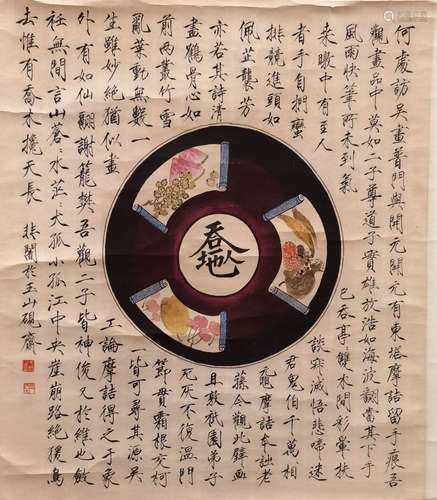 何處訪吳畫普門與開元開元有東塔摩詰留手痕吾
觀畫品中莫如二子尊道子實雄放浩如海波翻當其下手
風雨快筆所未到氣
已吞亭雙木間彩暈扶
來暾中有至人
談寂滅悟悲啼迷
者手自捫蠻
君鬼伯千萬相
排競進頭如
黿摩詰本詩老
佩芷襲芳
蓀今觀此壁畫
亦若其詩清
且敦祇園弟子
盡鶴骨心如
死灰不復溫門
前兩叢竹雪
節貫霜根交柯
亂葉動無數一
一皆可尋其源吳
生雖妙絕猶似畫
工論摩詰得之于象
外有如仙翮謝龍樊吾觀二子皆神俊又於維也斂
衽無間言山蒼、水茫、大孤小孤江中央崖崩路絕猿鳥
去惟有喬木攙天長 非闇於玉山硯齋